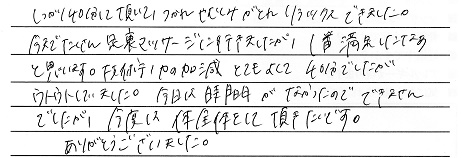 しっかり40分して頂いて、つかれやむくみがとれリラックスできました。
今までたくさん足裏マッサージに行きましたが、1番満足したなあ
と思います。技術、力の加減とてもよくて40分でしたが
ウトウトしていました。今日は時間がなかったのでできません
でしたが、今度は体全体をして頂きたいです。
ありがとうございました。